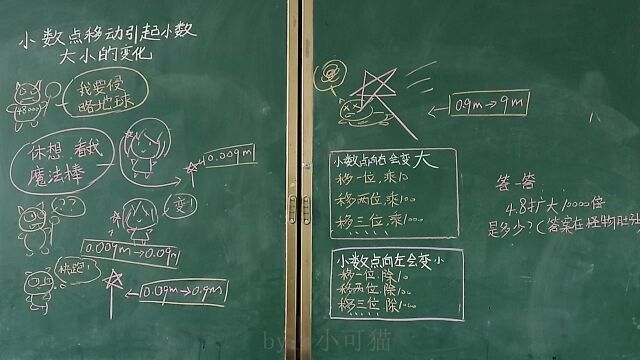 小数点移动引起小数
大小的变化
48000
我要侵
略地球
休想,看我
魔法棒
0.009m
??
变!
0.009m→0.09m
快跑!
0.09m→0.9m
0.9m→9m
小数点向右会变大
移一位,乘10
移两位,乘100
移三位,乘1000
小数点向左会变小
移一位,除10
移两位,除100
移三位,除1000
答一答
4.8扩大10000倍
是多少?(答案在怪物肚
by:小可猫